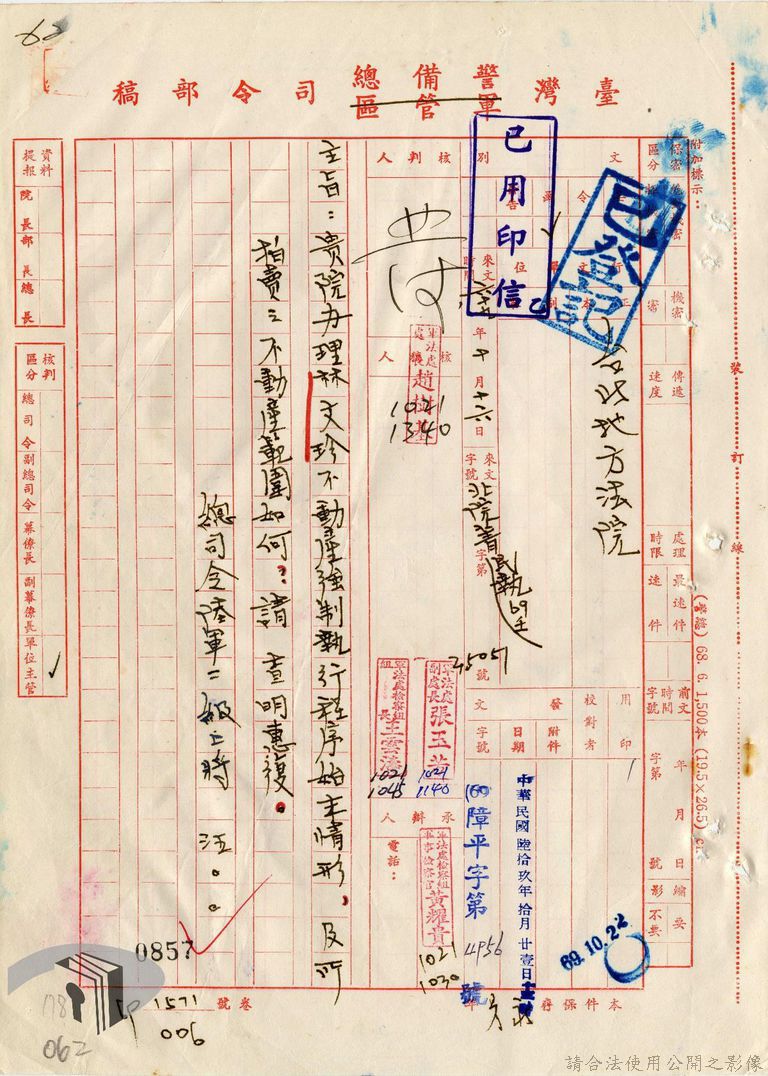 62
臺灣警備總司令部稿
軍管區
附加標示：
保密區分
機密
傳遞速度
處理時限
最速件
速件
前文時間字號
年 月 日
字第 號
編要
影不要
裝 訂 線
(普諮) 68. 6. 1,500本 (19.5×26.5) cr
已登記
台北地方法院
已用印信
文別
來文時間
六九年十月十六日
來文字號
北院着民執69壬字第45051號
核判人
核人
軍法處處長趙樹基
1021
1340
軍法處副處長張玉芳
1021
1140
軍法處檢察組組長王雲濤
1021
1045
承辦人
軍法處檢察組軍事檢察官黃耀貴
1021
1030
電話：
用印
校對者
發文
附件
日期
字號
中華民國陸拾玖年拾月廿壹日
(69)障平字第4956號
69.10.22
本件保存
主旨：貴院办理林文珍不動產強制執行程序始末情形，及所
拍賣之不動產範圍如何？請 查明惠復。
總司令陸軍二級上將 汪。。
資料提報
院長
部長
總長
核判區分
總司令
副總司令
幕僚長
副幕僚長
單位主管
0857
卷號
1571
006
178
062
請合法使用公開之影像